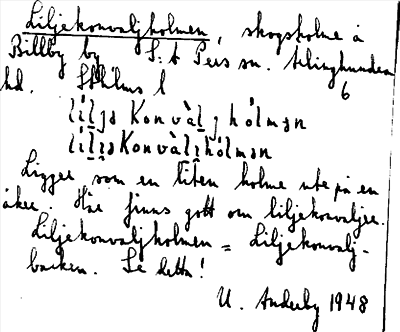 Liljekonvaljholmen, skogsholme å
Billby by S:t Pers sn. Ärlinghundra
hd. Sthlms l 6
lìljɘ Konvàlj hólmɘn
lìljɘKonvàljhólmɘn
Ligger som en liten holme ute på en
åker. Här finns gott om liljekonvaljer.
Liljekonvaljholmen = Liljekonvalj-
backen. Se detta!
U. Anderby 1948